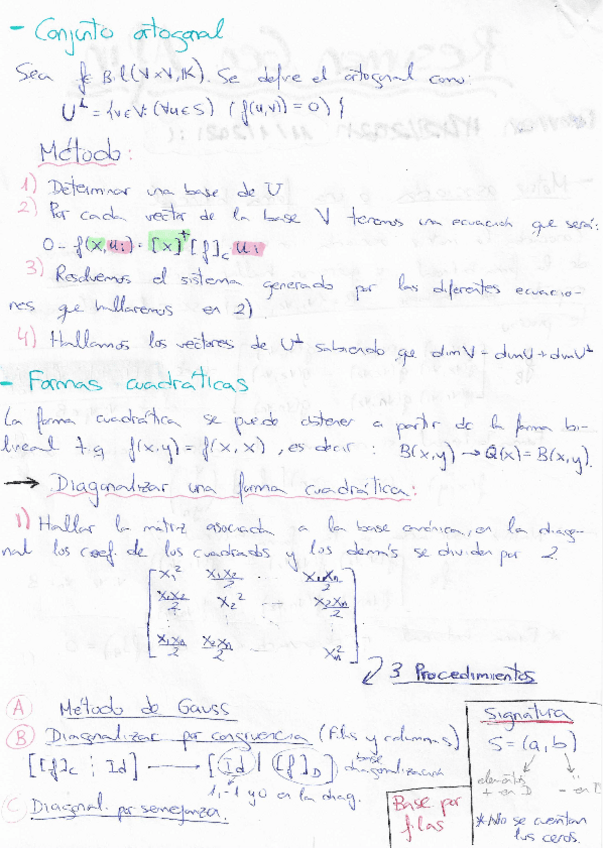 - Conjunto ortogonal
Sea f ∈ Bil(V×V, K). Se define el ortogonal como:
U⊥ = {v ∈ V: (∀u ∈ S) (f(u,v) = 0)}
Método:
1) Determinar una base de U
2) Por cada vector de la base V tenemos una ecuación que será:
0 = f(x, ui) = [x]^t [f]c ui
3) Resolvemos el sistema generado por las diferentes ecuacio-
nes que hallaremos en 2).
4) Hallamos los vectores de U⊥ sabiendo que dimV = dimU + dimU⊥
- Formas cuadráticas
La forma cuadrática se puede obtener a partir de la forma bi-
lineal t.q f(x,y) = f(x,x), es decir: B(x,y) → Q(x) = B(x,y).
→ Diagonalizar una forma cuadrática:
1) Hallar la matriz asociada a la base canónica, en la diago-
nal los coef. de los cuadrados y los demás se dividen por 2.
[ x1² x1x2/2 ... x1xn/2
x1x2/2 x2² ... x2xn/2
⋮ ⋮
x1xn/2 x2xn/2 xn² ]
3 Procedimientos
A Método de Gauss
B Diagonalizar por congruencia (filas y columnas)
[[f]c ⋮ Id] → [Id | [f]D] base diagonalización
1, -1 y 0 en la diag.
C Diagonal. por semejanza.
Base por
filas
Signatura
S = (a, b)
elementos
+ en D
" - en D
* No se cuentan
los ceros.